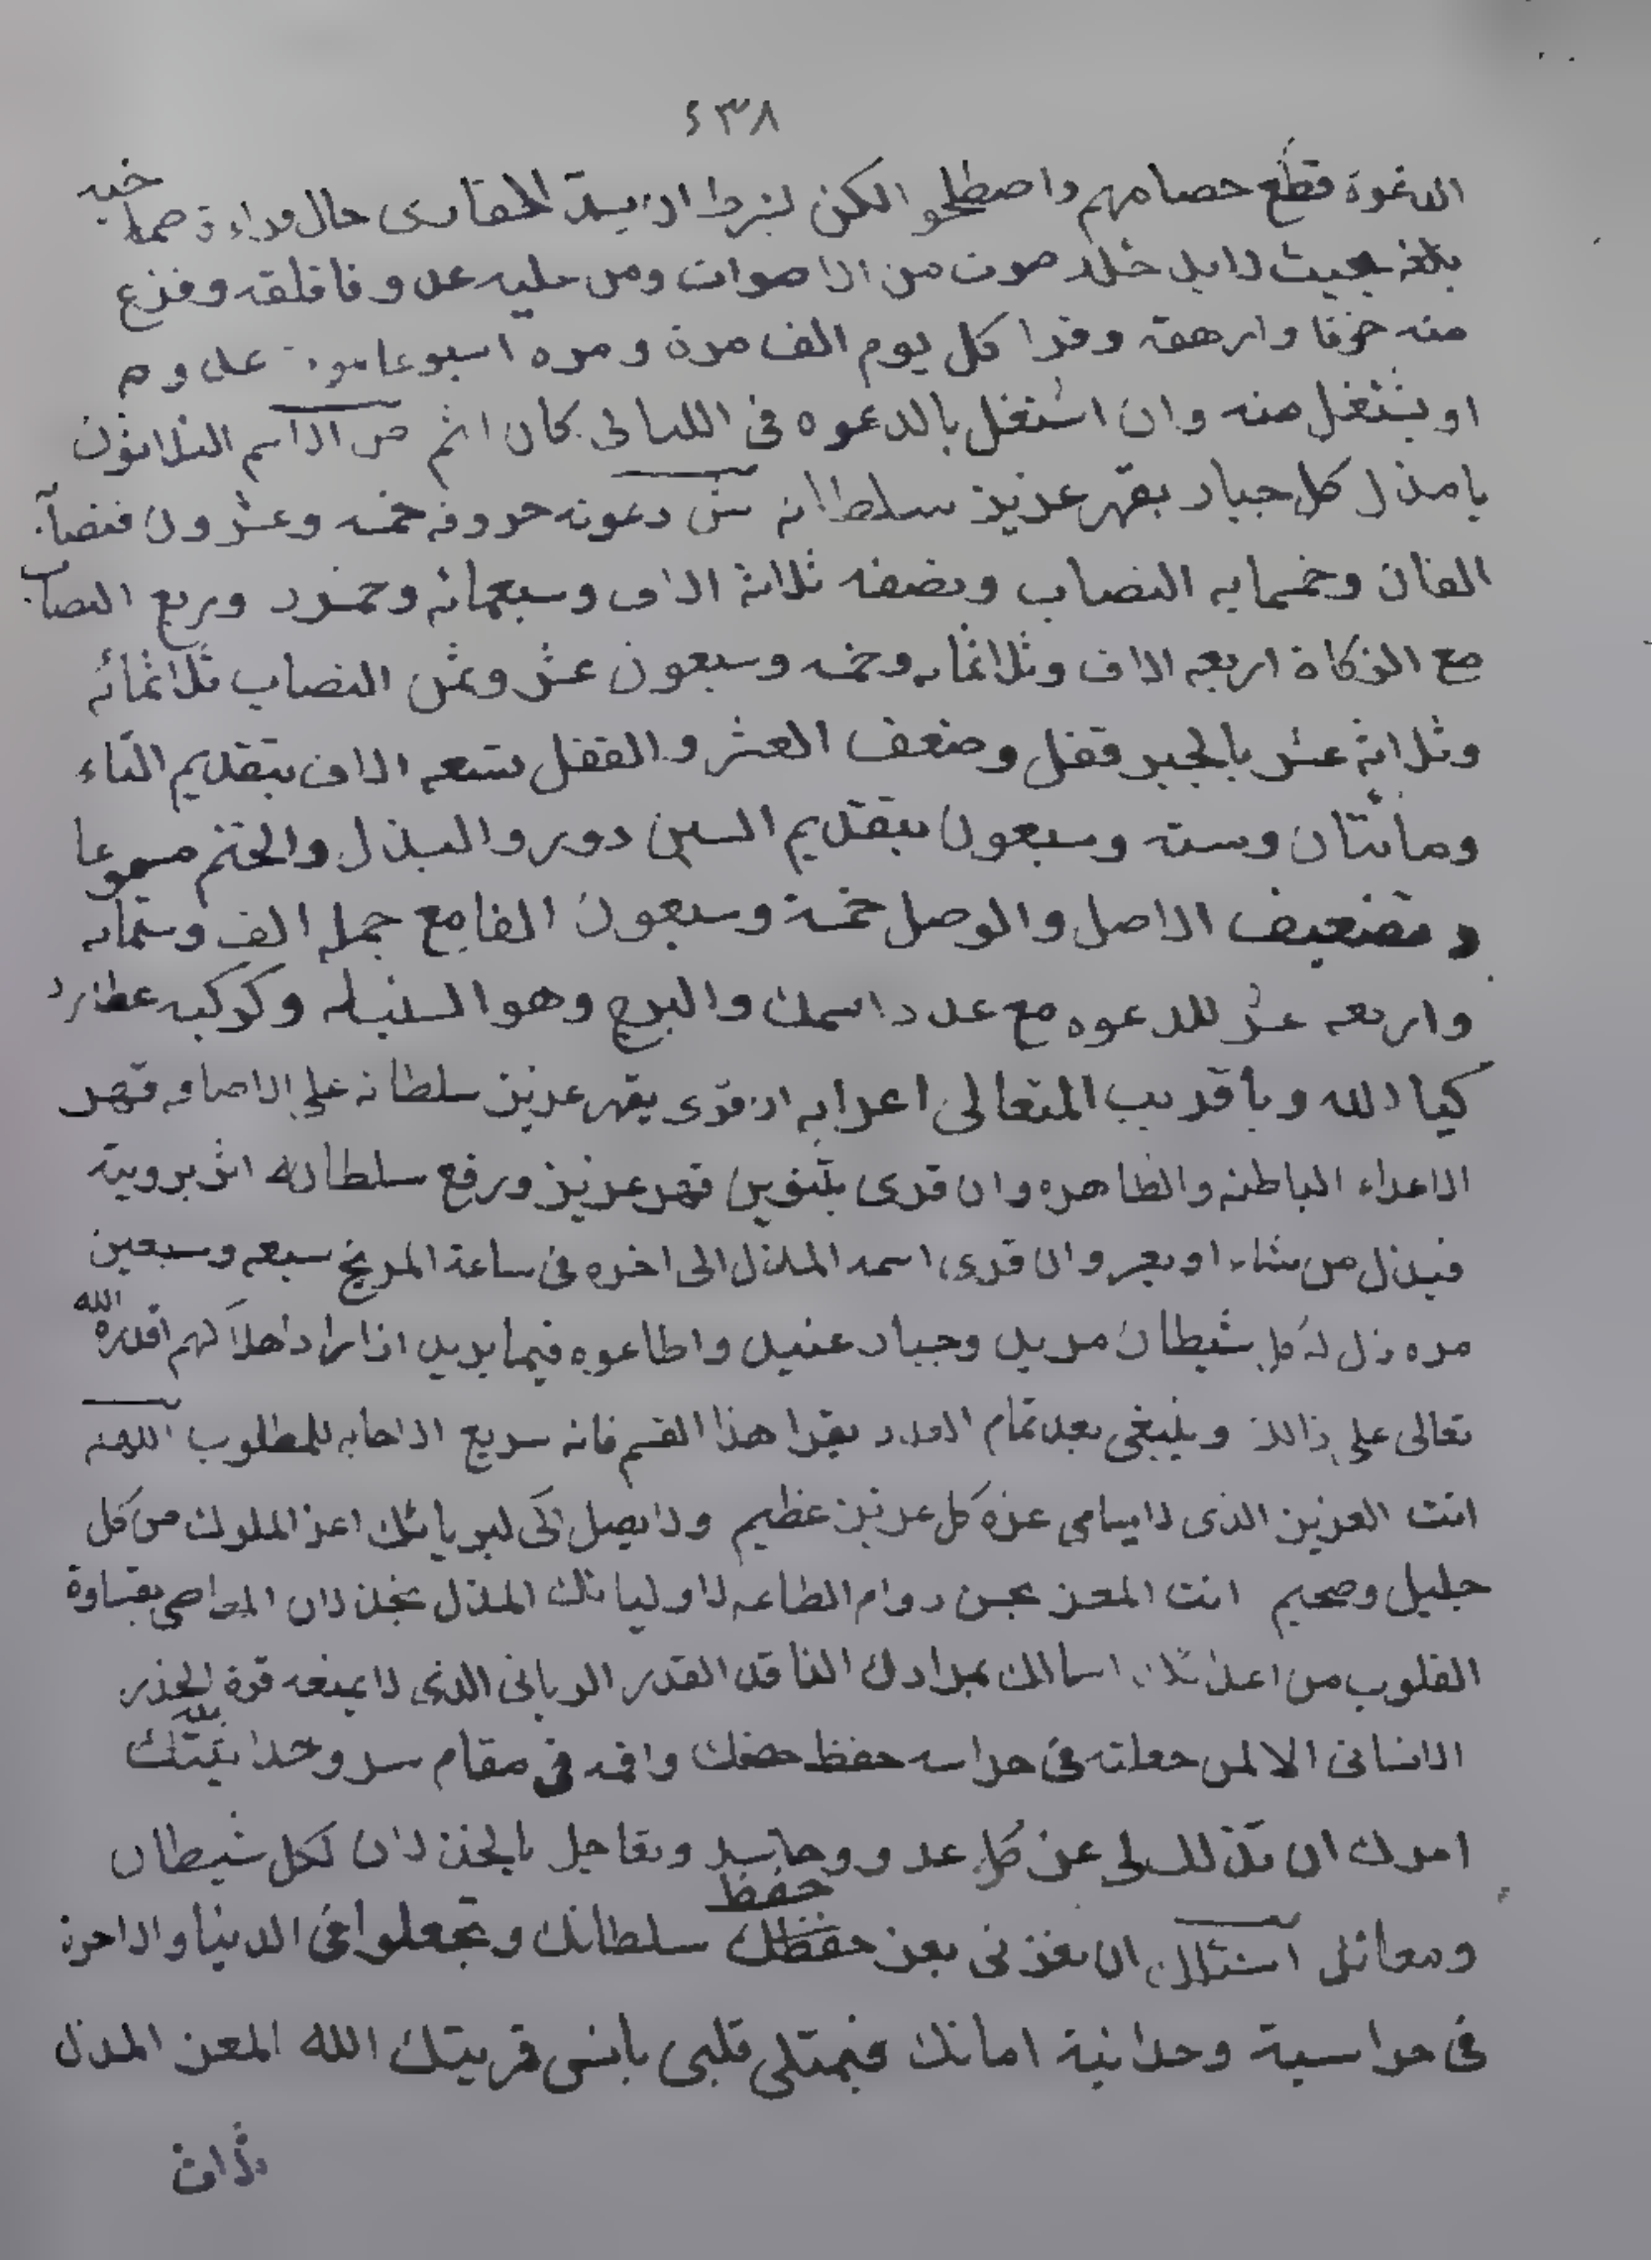 ٤٣٨
الدعوة قطع حصامهم واصطلحو الكن بشرط ان حال صماخيه
بحيث لايدخله صوت من الاصوات ومن عليه عدو فاقلقه وفزع
منه خوفا وارهقه وقرا كل يوم الف مرة ومره اسبوعا عدوه
او يشتغل منه وان اشتغل بالدعوه فى الليالى كان اتم ص الاسم الثلاثون
يا مذل كل جبار بقهر عزيز سلطانه ش دعوته حروفه خمسه وعشرون فنصاب
الفان وخمسمايه النصاب ونصفه ثلاثة الاف وسبعمائه وخمسون وربع النصاب
مع الزكاة اربعه الاف وثلاثمايه وخمسه وسبعون عشر وثمن النصاب ثلاثمائه
وثلاثة عشر بالجبر قفل وضعف العشر والقفل تسعه الاف بتقديم التاء
ومائتان وسته وسبعون بتقديم السين دور والبذل والختم مجموعا
وتضعيف الاصل والوصل خمسة وسبعون الفا مع جمله الف وستمائه
واربعه عشر للدعوه مع عدد اسمك والبرج وهو السنبله وكوكبه عطارد
كيا الله ويا قريب المتعالى اعرابه ان قرى بقهر عزيز سلطانه على الاضافه قهر
الاعداء الباطنه والظاهره وان قرى بتنوين قهر عزيز ورفع سلطانه اثر برويته
فيذل من يشاء او يعز وان قرى اسمه المذل الى اخره فى ساعة المريخ سبعه وسبعين
مره ذل له كل شيطان مريد وجبار عنيد واطاعوه فيما يريد اذا اراد اهلاكهم اقدره الله
تعالى على ذالك وينبغى بعد تمام العدد يقرا هذا القسم فانه سريع الاجابه للمطلوب اللهم
انت العزيز الذى لا يسامى عزه كل عزيز عظيم ولا يصل الى كبريائك اعز الملوك من كل
جليل وصحيم انت المعز بحسن دوام الطاعه لاوليائك المذل بخذلان المعاصى بقساوة
القلوب من اعدائك اسالك بمرادك النافذ القدر الربانى الذى لا يمنعه قوة الحذر
الانسانى الا لمن جعلته فى حراسه حفظ حصنك واقمه فى مقام سر وحدانيتك
امرك ان تذلل لى عز كل عدو وحاسد وتعاجل بالخذلان لكل شيطان
ومعاند اسئلك ان تعزنى بعز حفظك حفظ سلطانك وتجعلوا فى الدنيا والاخرة
فى حراسية وحدانية امانك فيمتلى قلبى بانس قربتك الله المعز المذل
ثلاث